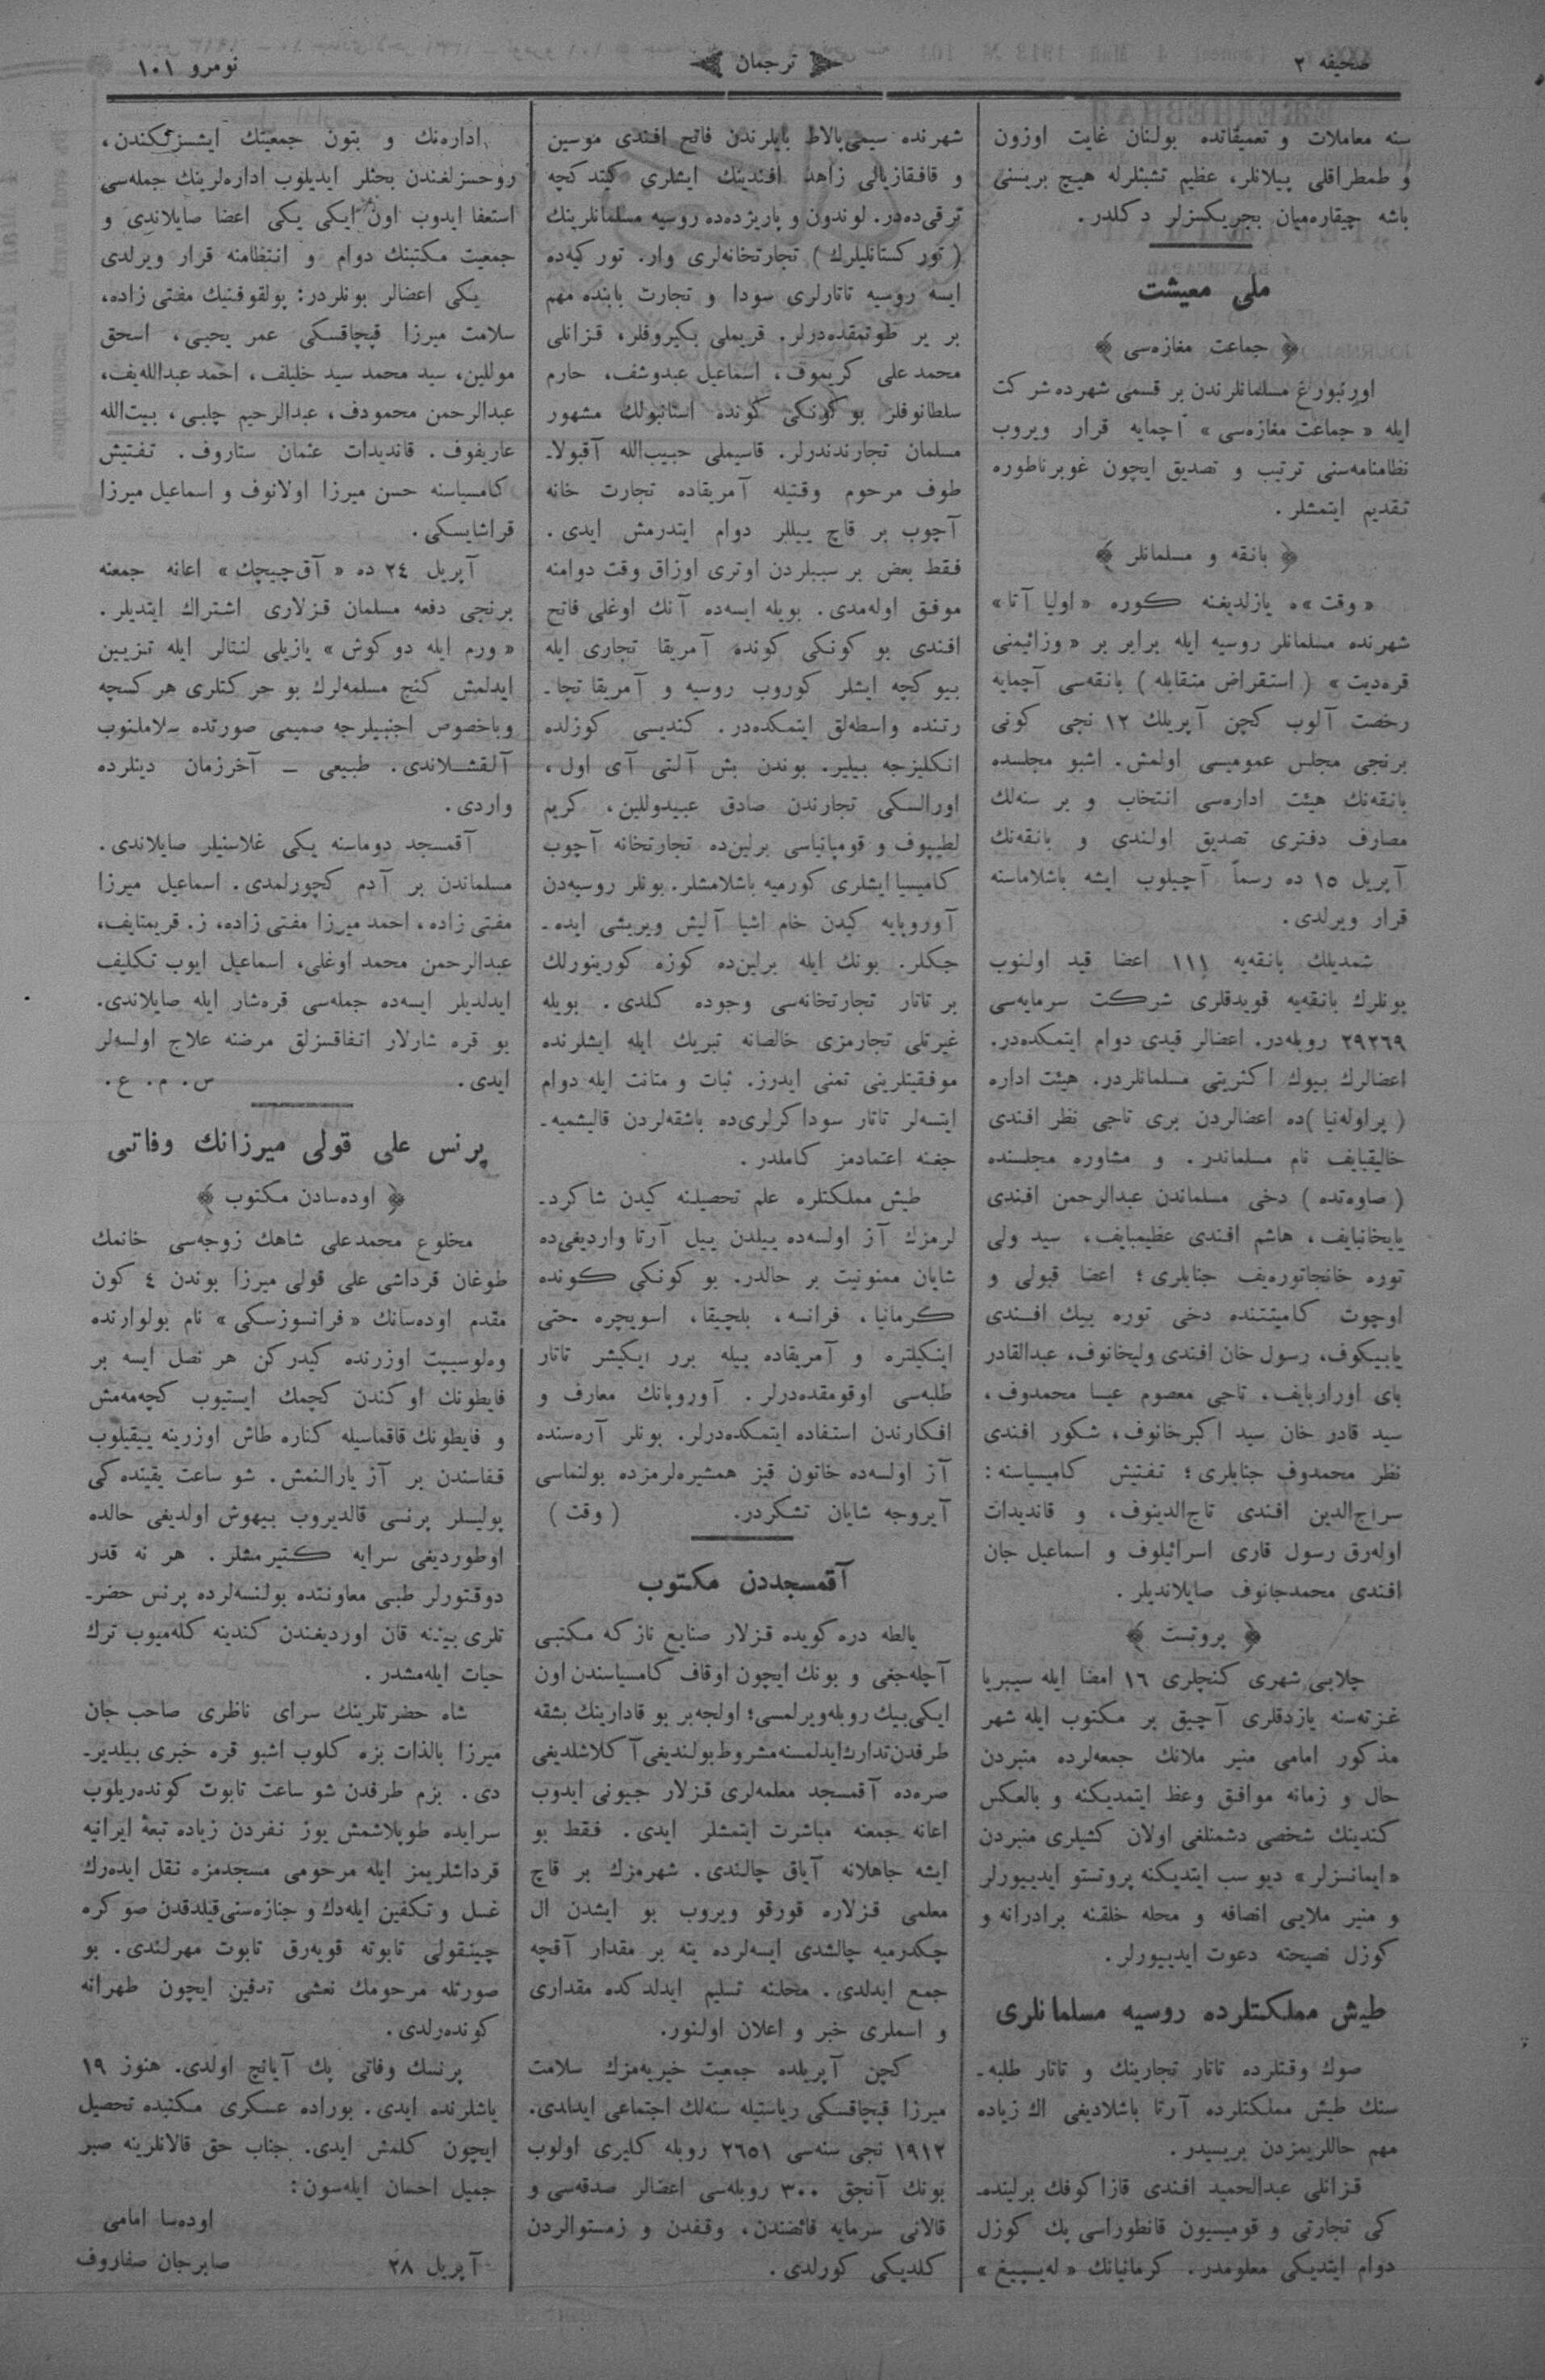 صحیفه ٢
ترجمان
نومرو ١٠١
سنه معاملات و تعمیقاتده بولنان غایت اوزون
و طمطراقلی پیلانلر، عظیم تشبثلرله هیچ بریسنی
باشه چیقاره‌میان بجریکسزلر دکلدر.
ملی معیشت
﴿ جماعت مغازه‌سی ﴾
اورنبورغ مسلمانلرندن بر قسمی شهرده شرکت
ایله «جماعت مغازه‌سی» آچمایه قرار ویروب
نظامنامه‌سنی ترتیب و تصدیق ایچون غوبرناطوره
تقدیم ایتمشلر.
﴿ بانقه و مسلمانلر ﴾
«وقت»ه یازلدیغنه کوره «اولیا آتا»
شهرنده مسلمانلر روسیه ایله برابر بر «وزائیمنی
قره‌دیت» (استقراض متقابله) بانقه‌سی آچمایه
رخصت آلوب کچن آپریلك ١٢ نجی کونی
برنجی مجلس عمومیسی اولمش. اشبو مجلسده
بانقه‌نك هیئت اداره‌سی انتخاب و بر سنه‌لك
مصارف دفتری تصدیق اولندی و بانقه‌نك
آپریل ١٥ ده رسماً آچیلوب ایشه باشلاماسنه
قرار ویرلدی.
شمدیلك بانقه‌یه ١١١ اعضا قید اولنوب
بونلرك بانقه‌یه قویدقلری شرکت سرمایه‌سی
٢٩٢٦٩ روبله‌در. اعضالر قیدی دوام ایتمکده‌در.
اعضالرك بیوك اکثریتی مسلمانلردر. هیئت اداره
(پراوله‌نیا)ده اعضالردن بری تاجی نظر افندی
خالیقبایف نام مسلماندر. و مشاوره مجلسنده
(صاوه‌تده) دخی مسلماندن عبدالرحمن افندی
یابخانبایف، هاشم افندی عظیمبایف، سید ولی
توره خانجاتوره‌یف جنابلری؛ اعضا قبولی و
اوچوت کامیتتنده دخی توره بیك افندی
یابیکوف، رسول خان افندی ولیخانوف، عبدالقادر
بای اورازبایف، تاجی معصوم عیسا محمدوف،
سید قادر خان سید اکبرخانوف، شکور افندی
نظر محمدوف جنابلری؛ تفتیش کامیسیاسنه:
سراج‌الدین افندی تاج‌الدینوف، و قاندیدات
اوله‌رق رسول قاری اسرائیلوف و اسماعیل جان
افندی محمدجانوف صایلاندیلر.
﴿ پروتست ﴾
چلابی شهری کنجلری ١٦ امضا ایله سیبریا
غزته‌سنه یازدقلری آچیق بر مکتوب ایله شهر
مذکور امامی منیر ملانك جمعه‌لرده منبردن
حال و زمانه موافق وعظ ایتمدیکنه و بالعکس
کندینك شخصی دشمنلغی اولان کشیلری منبردن
«ایمانسزلر» دیو سب ایتدیکنه پروتستو ایدییورلر
و منیر ملایی انصافه و محله خلقنه برادرانه و
کوزل نصیحته دعوت ایدییورلر.
طیش مملکتلرده روسیه مسلمانلری
صوك وقتلرده تاتار تجارینك و تاتار طلبه‌-
سنك طیش مملکتلرده آرتا باشلادیغی اك زیاده
مهم حاللریمزدن بریسیدر.
قزانلی عبدالحمید افندی قازاکوفك برلینده‌-
کی تجارتی و قومیسیون قانطوراسی پك کوزل
دوام ایتدیکی معلومدر. کرمانیانك «له‌یپیغ»
شهرنده سیمی‌پالاط بایلرندن فاتح افندی موسین
و قافقازیالی زاهد افندینك ایشلری کیتدکچه
ترقی‌ده‌در. لوندون و پاریزده‌ده روسیه مسلمانلرینك
(تورکستانلیلرك) تجارتخانه‌لری وار. تورکیه‌ده
ایسه روسیه تاتارلری سودا و تجارت بابنده مهم
بر یر طوتمقده‌درلر. قریملی بکیروفلر، قزانلی
محمد علی کریموف، اسماعیل عبدوشف، حارم
سلطانوفلر بو کونکی کونده استانبولك مشهور
مسلمان تجارندندرلر. قاسیملی حبیب‌الله آقبولا-
طوف مرحوم وقتیله آمریقاده تجارت خانه
آچوب بر قاچ ییللر دوام ایتدرمش ایدی.
فقط بعض بر سببلردن اوتری اوزاق وقت دوامنه
موفق اوله‌مدی. بویله ایسه‌ده آنك اوغلی فاتح
افندی بو کونکی کونده آمریقا تجاری ایله
بیوکچه ایشلر کوروب روسیه و آمریقا تجا-
رتنده واسطه‌لق ایتمکده‌در. کندیسی کوزلده
انکلیزجه بیلیر. بوندن بش آلتی آی اول،
اورالسکی تجارندن صادق عبیدوللین، کریم
لطیپوف و قومپانیاسی برلین‌ده تجارتخانه آچوب
کامیسیا ایشلری کورمیه باشلامشلر. بونلر روسیه‌دن
آوروپایه کیدن خام اشیا آلیش ویریشی ایده-
جکلر. بونك ایله برلین‌ده کوزه کورینورلك
بر تاتار تجارتخانه‌سی وجوده کلدی. بویله
غیرتلی تجارمزی خالصانه تبریك ایله ایشلرنده
موفقیتلرینی تمنی ایدرز. ثبات و متانت ایله دوام
ایتسه‌لر تاتار سوداکرلری‌ده باشقه‌لردن قالیشمیه-
جغنه اعتمادمز کاملدر.
طیش مملکتلره علم تحصیلنه کیدن شاکرد-
لرمزك آز اولسه‌ده ییلدن ییل آرتا واردیغی‌ده
شایان ممنونیت بر حالدر. بو کونکی کونده
کرمانیا، فرانسه، بلچیقا، اسویچره حتی
اینکیلتره و آمریقاده بیله برر ایکیشر تاتار
طلبه‌سی اوقومقده‌درلر. آوروپانك معارف و
افکارندن استفاده ایتمکده‌درلر. بونلر آره‌سنده
آز اولسه‌ده خاتون قیز همشیره‌لرمزده بولنماسی
آیروجه شایان تشکردر. (وقت)
آقمسجددن مکتوب
یالطه دره‌کویده قزلار صنایع نازکه مکتبی
آچله‌جغی و بونك ایچون اوقاف کامسیاسندن اون
ایکی بیك روبله ویرلمسی؛ اولجه بر بو قادارینك بشقه
طرفدن تدارك ایدلمسنه مشروط بولندیغی آکلاشلدیغی
صره‌ده آقمسجد معلمه‌لری قزلار جیونی ایدوب
اعانه جمعنه مباشرت ایتمشلر ایدی. فقط بو
ایشه جاهلانه آیاق چالندی. شهرمزك بر قاچ
معلمی قزلاره قورقو ویروب بو ایشدن ال
چکدرمیه چالشدی ایسه‌لرده ینه بر مقدار آقچه
جمع ایدلدی. محلنه تسلیم ایدلدکده مقداری
و اسملری خبر و اعلان اولنور.
کچن آپریلده جمعیت خیریه‌مزك سلامت
میرزا قپچاقسکی ریاستیله سنه‌لك اجتماعی ایدلدی.
١٩١٢ نجی سنه‌سی ٢٦٥١ روبله کلیری اولوب
بونك آنجق ٣٠٠ روبله‌سی اعضالر صدقه‌سی و
قالانی سرمایه فائضندن، وقفدن و زمستوالردن
کلدیکی کورلدی.
اداره‌نك و بتون جمعیتك ایشسزلکندن،
روحسزلغندن بحثلر ایدیلوب اداره‌لرینك جمله‌سی
استعفا ایدوب اون ایکی یکی اعضا صایلاندی و
جمعیت مکتبنك دوام و انتظامنه قرار ویرلدی
یکی اعضالر بونلردر: پولقوفنیك مفتی زاده،
سلامت میرزا قپچاقسکی عمر یحیی، اسحق
موللین، سید محمد سید خلیلف، احمد عبدالله‌یف،
عبدالرحمن محمودف، عبدالرحیم چلبی، بیت‌الله
عاریفوف. قاندیدات عثمان ستاروف. تفتیش
کامسیاسنه حسن میرزا اولانوف و اسماعیل میرزا
قراشایسکی.
آپریل ٢٤ ده «آق‌چیچك» اعانه جمعنه
برنجی دفعه مسلمان قزلاری اشتراك ایتدیلر.
«ورم ایله دوکوش» یازیلی لنتالر ایله تزیین
ایدلمش کنج مسلمه‌لرك بو حرکتلری هرکسچه
وباخصوص اجنبیلرجه صمیمی صورتده سلاملنوب
آلقشلاندی. طبیعی — آخرزمان دینلرده
واردی.
آقمسجد دوماسنه یکی غلاسنیلر صایلاندی.
مسلماندن بر آدم کچورلمدی. اسماعیل میرزا
مفتی زاده، احمد میرزا مفتی زاده، ز. قریمتایف،
عبدالرحمن محمد اوغلی، اسماعیل ایوب تکلیف
ایدلدیلر ایسه‌ده جمله‌سی قره‌شار ایله صایلاندی.
بو قره شارلار اتفاقسزلق مرضنه علاج اولسه‌لر
ایدی. س. م. ع.
پرنس علی قولی میرزانك وفاتی
﴿ اوده‌سادن مکتوب ﴾
مخلوع محمدعلی شاهك زوجه‌سی خانمك
طوغان قرداشی علی قولی میرزا بوندن ٤ کون
مقدم اوده‌سانك «فرانسوزسکی» نام بولوارنده
وه‌لوسیپت اوزرنده کیدرکن هر نصل ایسه بر
فایطونك اوکندن کچمك ایستیوب کچه‌مه‌مش
و فایطونك قاقماسیله کناره طاش اوزرینه ییقیلوب
قفاسندن بر آز یارالنمش. شو ساعت یقینده‌کی
پولیسلر پرنسی قالدیروب بیهوش اولدیغی حالده
اوطوردیغی سرایه کتیرمشلر. هر نه قدر
دوقتورلر طبی معاونتده بولنسه‌لرده پرنس حضر-
تلری بیننه قان اوردیغندن کندینه کله‌میوب ترك
حیات ایله‌مشدر.
شاه حضرتلرینك سرای ناظری صاحب جان
میرزا بالذات بزه کلوب اشبو قره خبری بیلدیر-
دی. بزم طرفدن شو ساعت تابوت کونده‌ریلوب
سرایده طوپلاشمش یوز نفردن زیاده تبعهٔ ایرانیه
قرداشلریمز ایله مرحومی مسجدمزه نقل ایده‌رك
غسل و تکفین ایله‌دك و جنازه‌سنی قیلدقدن صوکره
چینقولی تابوته قویه‌رق تابوت مهرلندی. بو
صورتله مرحومك نعشی تدفین ایچون طهرانه
کونده‌رلدی.
پرنسك وفاتی پك آیانچ اولدی. هنوز ١٩
یاشلرنده ایدی. بوراده عسکری مکتبده تحصیل
ایچون کلمش ایدی. جناب حق قالانلرینه صبر
جمیل احسان ایله‌سون:
اوده‌سا امامی
آپریل ٢٨ صابرجان صفاروف